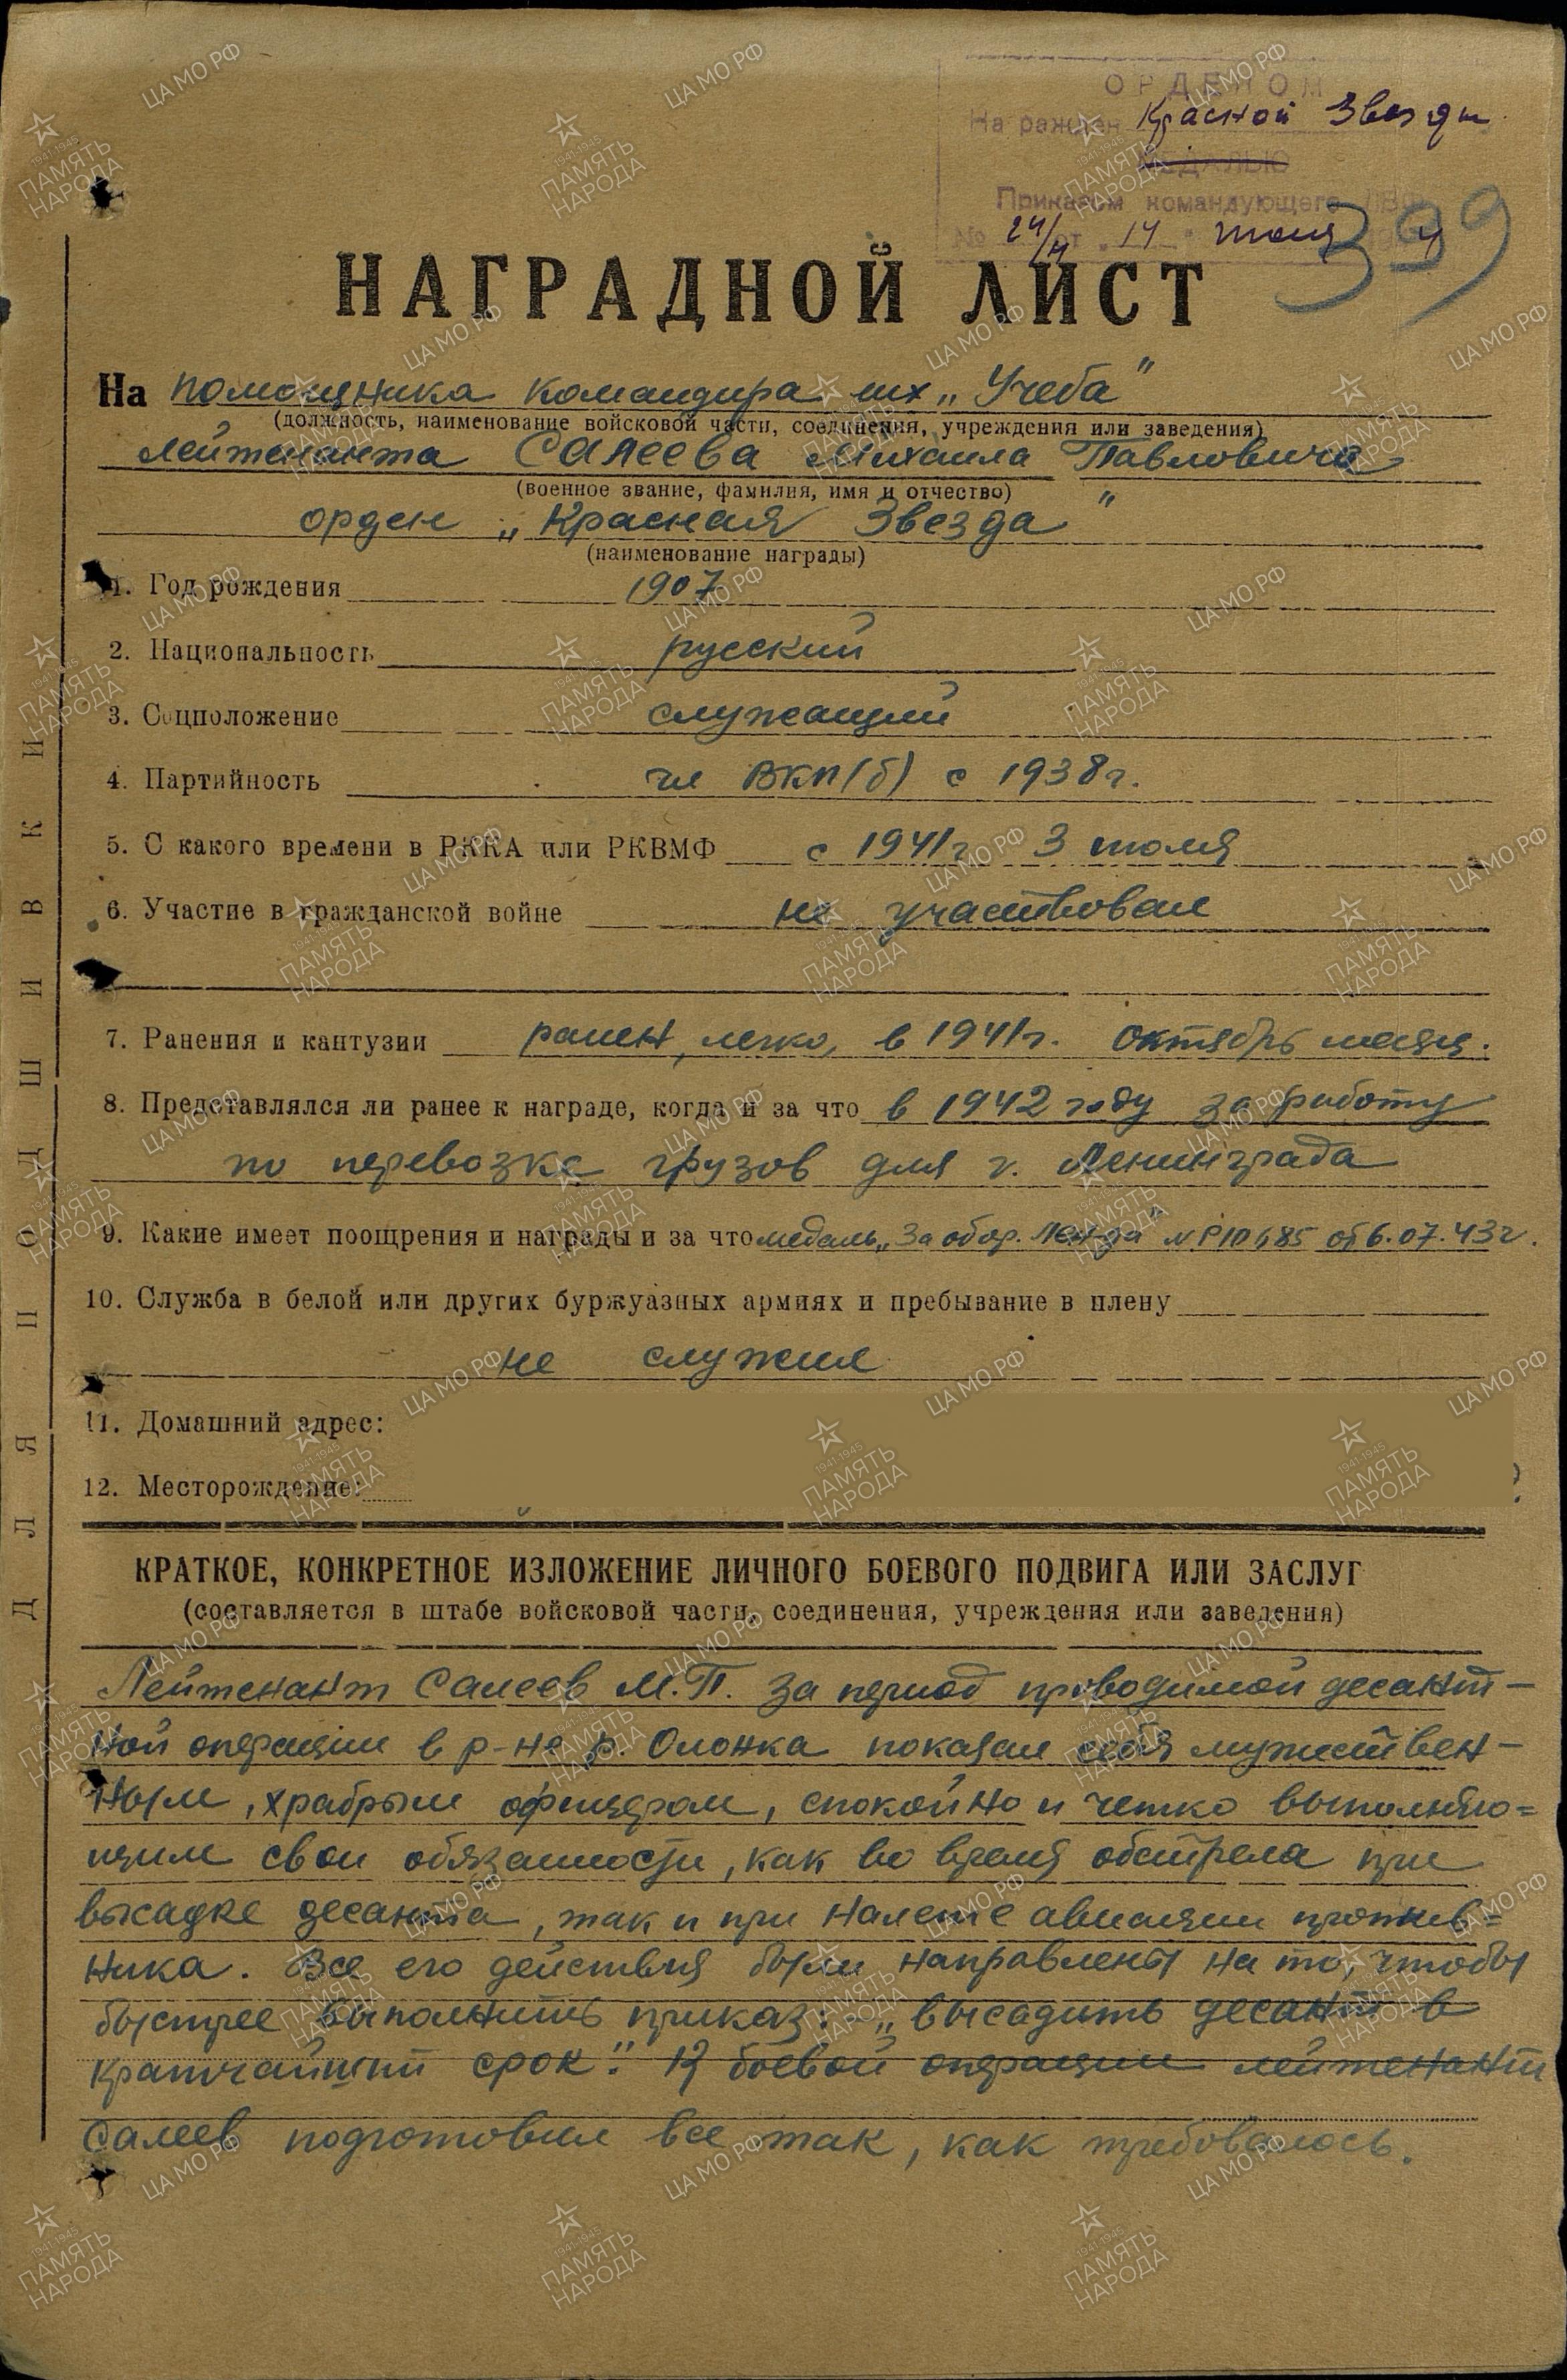 ОРДЕНОМ
Награжден Красной Звезды
МЕДАЛЬЮ
Приказом командующего
№ 24/н от " 14 " июля
399
НАГРАДНОЙ ЛИСТ
На помощника командира шх „Учеба"
(должность, наименование войсковой части, соединения, учреждения или заведения)
лейтенанта Салеева Михаила Павловича
(военное звание, фамилия, имя и отчество)
орден „Красная Звезда"
(наименование награды)
1. Год рождения 1907
2. Национальность русский
3. Соцположение служащий
4. Партийность чл ВКП(б) с 1938 г.
5. С какого времени в РККА или РКВМФ с 1941 г 3 июля
6. Участие в гражданской войне не участвовал
7. Ранения и кантузии ранен, легко, в 1941 г. октябрь месяц.
8. Представлялся ли ранее к награде, когда и за что в 1942 году за работу
по перевозке грузов для г. Ленинграда
9. Какие имеет поощрения и награды и за что медаль „За обор. Лен-да" от 6.07.43 г.
10. Служба в белой или других буржуазных армиях и пребывание в плену
не служил
11. Домашний адрес:
12. Месторождение:
КРАТКОЕ, КОНКРЕТНОЕ ИЗЛОЖЕНИЕ ЛИЧНОГО БОЕВОГО ПОДВИГА ИЛИ ЗАСЛУГ
(составляется в штабе войсковой части, соединения, учреждения или заведения)
Лейтенант Салеев М.П. за период проводимой десант-
ной операции в р-не р. Олонка показал себя мужествен-
ным, храбрым офицером, спокойно и четко выполняю=
щим свои обязанности, как во время обстрела при
высадке десанта, так и при налете авиации против=
ника. Все его действия были направлены на то, чтобы
быстрее выполнить приказ: „высадить десант в
кратчайший срок". К боевой операции лейтенант
Салеев подготовил все так, как требовалось.
ДЛЯ ПОДШИВКИ
ЦА МО РФ
1941-1945
ПАМЯТЬ
НАРОДА